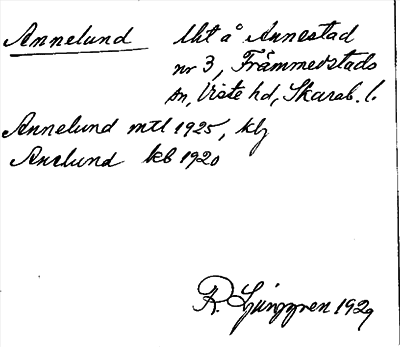 Annelund lht å Annestad
nr 3, Främmestads
sn, Viste hd, Skarab. l.
Annelund mtl 1925, klj
Anelund kb 1920
R. Ljunggren 1929